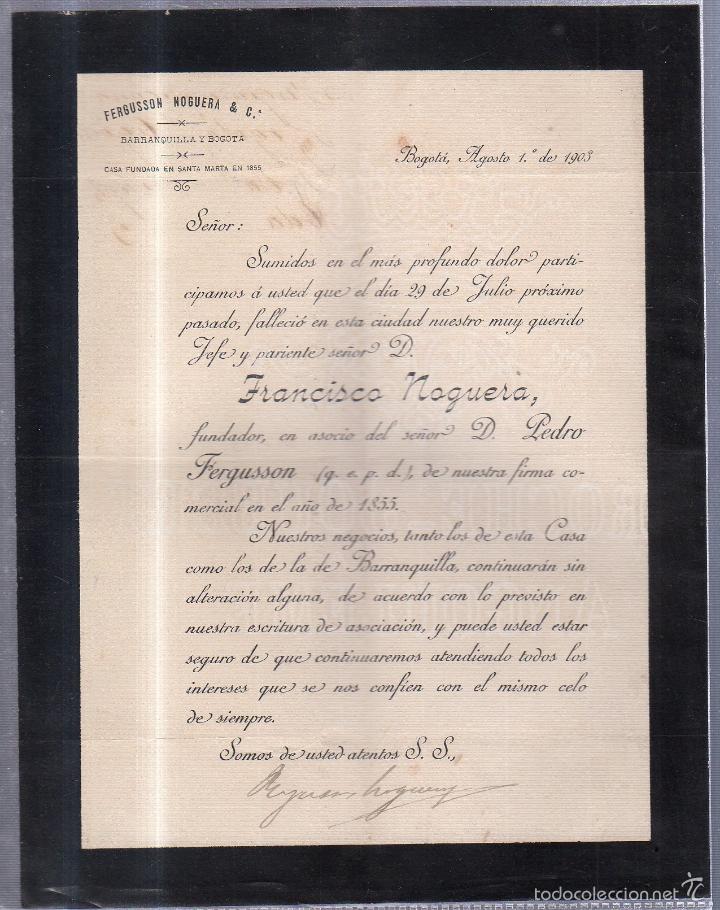 FERGUSSON NOGUERA & C.ª
BARRANQUILLA Y BOGOTÁ
CASA FUNDADA EN SANTA MARTA EN 1855
Bogotá, Agosto 1.º de 1903
Señor:
Sumidos en el más profundo dolor parti-
cipamos á usted que el día 29 de Julio próximo
pasado, falleció en esta ciudad nuestro muy querido
Jefe y pariente señor D.
Francisco Noguera,
fundador, en asocio del señor D. Pedro
Fergusson (q. e. p. d.), de nuestra firma co-
mercial en el año de 1855.
Nuestros negocios, tanto los de esta Casa
como los de la de Barranquilla, continuarán sin
alteración alguna, de acuerdo con lo previsto en
nuestra escritura de asociación, y puede usted estar
seguro de que continuaremos atendiendo todos los
intereses que se nos confíen con el mismo celo
de siempre.
Somos de usted atentos S. S.,
todocoleccion.net